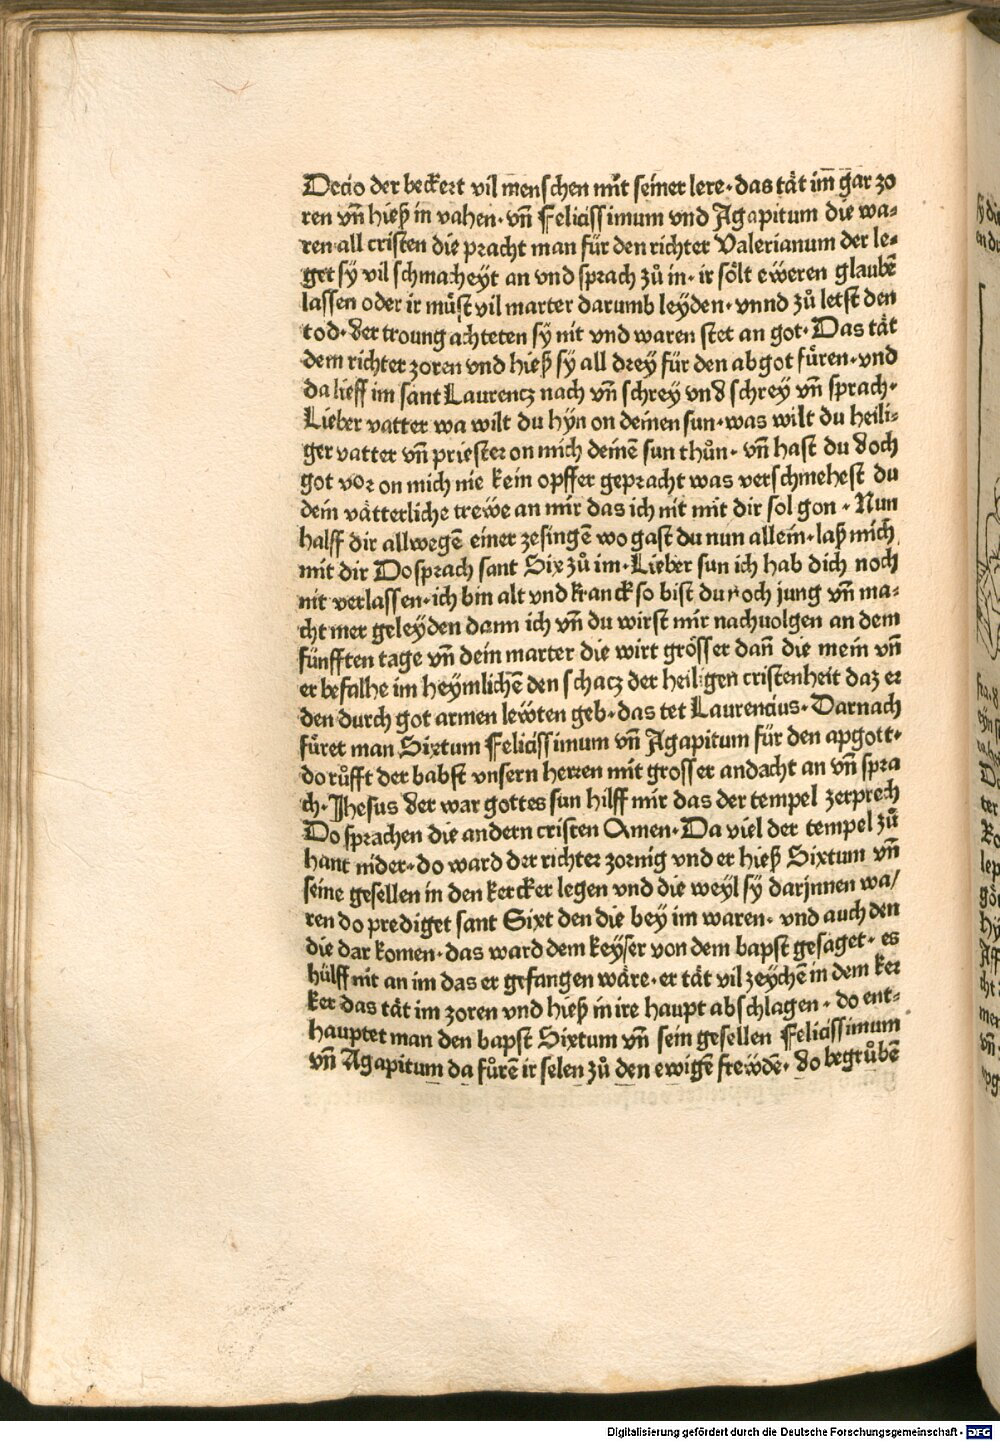 Decio der beckert vil menschen mit seiner lere· das tät im̄ gar zo
ren vn̄ hieß in vahen· vn̄ Felicissimum vnd Agapitum die wa⸗
ren all cristen die pracht man für den richter Valerianum der le⸗
get sy vil schmacheyt an vnd sprach zů in· ir sölt eweren glaubē
lassen oder ir müst vil marter darumb leyden· vnnd zů letst den
tod· der troung achteten sy nit vnd waren stet an got· Das tät
dem richter zoren vnd hieß sy all drey für den abgot füren· vnd
da lieff im sant Laurencz nach vn̄ schrey vnd schrey vn̄ sprach·
Lieber vatter wa wilt du hyn on deinen sun· was wilt du heili⸗
ger vatter vn̄ priester on mich deinē sun thůn· vn̄ hast du doch
got vor on mich nie kein opffer gepracht was verschmehest du
dein vätterliche trewe an mir das ich nit mit dir sol gon· Nun
halff dir allwegē einer ze singē wo gast du nun allein· laß mich
mit dir Do sprach sant Six zů im· Lieber sun ich hab dich noch
nit verlassen· ich bin alt vnd kranck so bist du noch jung vn̄ ma⸗
cht mer geleyden dann ich vn̄ du wirst mir nachuolgen an dem
fünfften tage vn̄ dein marter die wirt grösser dan̄ die mein vn̄
er befalhe im heymlichē den schacz der heiligen cristenheit daz er
den durch got armen lewten geb· das tet Laurencius· Darnach
füret man Sixtum Felicissimum vn̄ Agapitum für den apgott·
do růfft der babst vnsern herren mit grosser andacht an vn̄ spra
ch· Jhesus der war gottes sun hilff mir das der tempel zerprech
Do sprachen die andern cristen Amen· Da viel der tempel zů
hant nider· do ward der richter zornig vnd er hieß Sixtum vn̄
seine gesellen in den kercker legen vnd die weyl sy darjnnen wa/
ren do prediget sant Sixt den die bey im waren· vnd auch den
die dar komen· das ward dem keyser von dem bapst gesaget· es
hülff nit an im das er gefangen wäre· er tät vil zeychē in dem ker
ker das tät im zoren vnd hieß in ire haupt abschlagen· do ent⸗
hauptet man den bapst Sixtum vn̄ sein gesellen Felicissimum
vn̄ Agapitum da fůrē ir selen zů den ewigē frewdē· do begrůbē
Digitalisierung gefördert durch die Deutsche Forschungsgemeinschaft - DFG